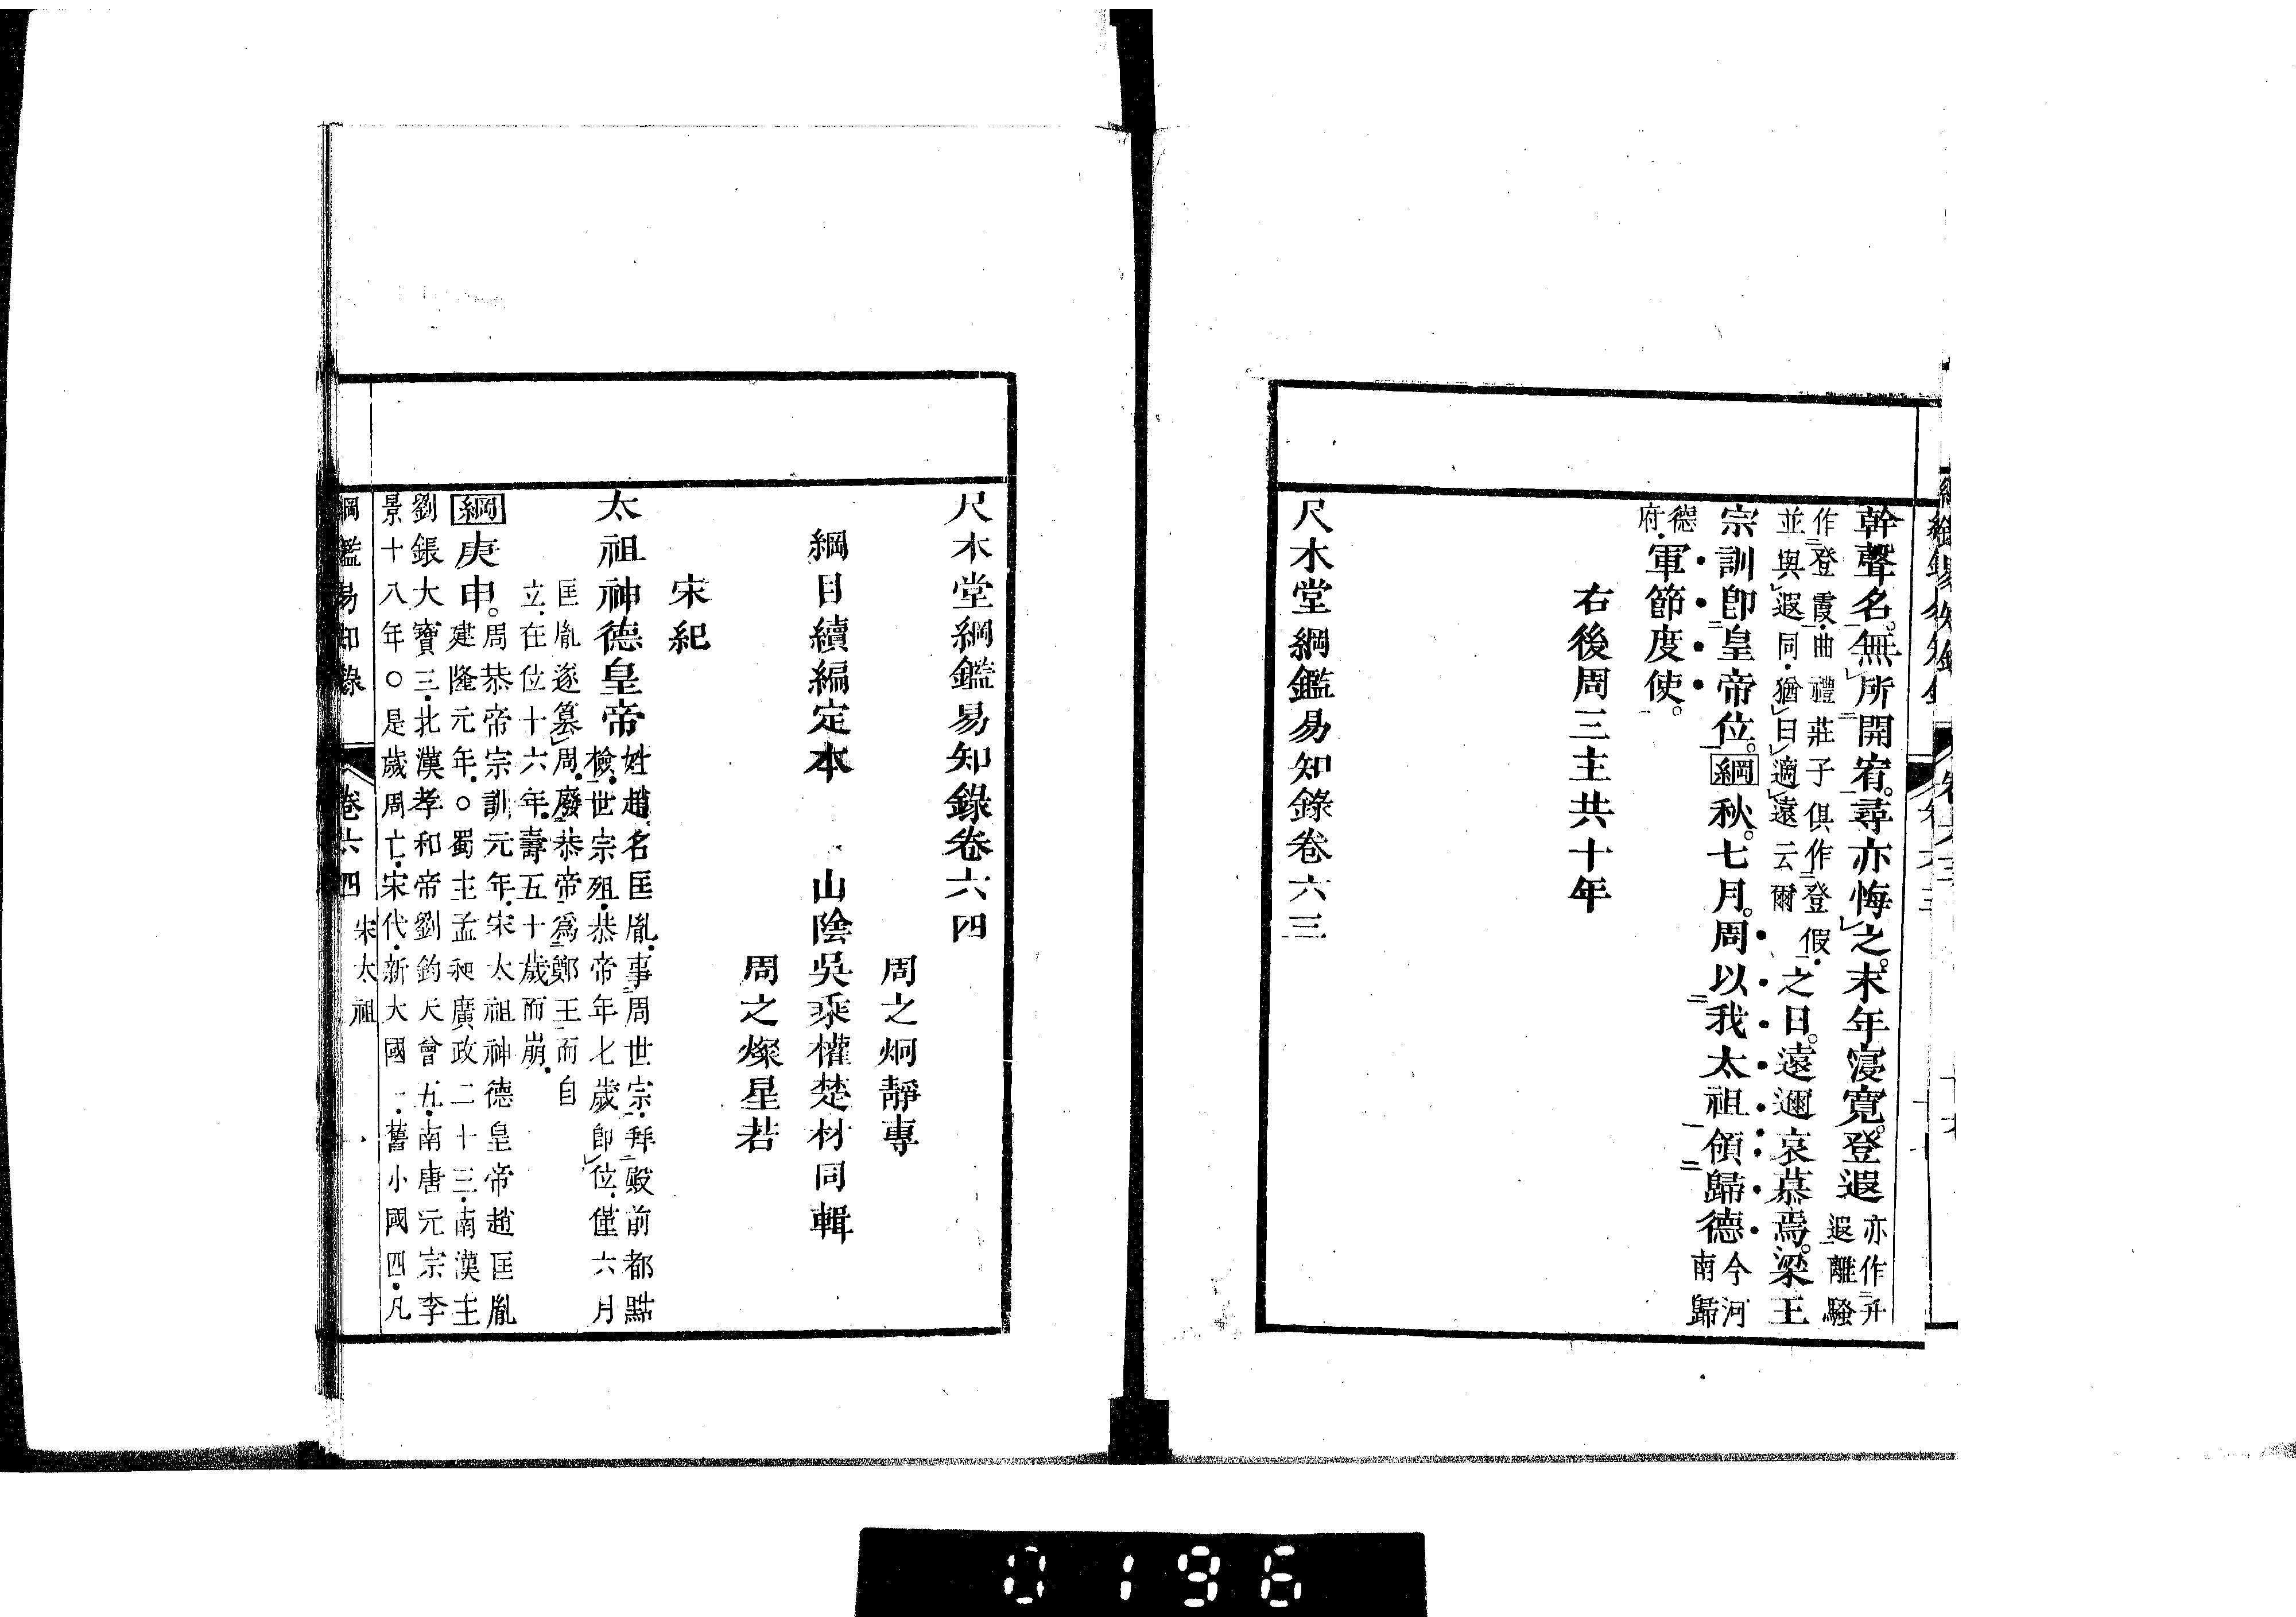 幹聲名。無所開宥。尋亦悔之。末年寖寬。登遐亦作升遐離騷
作登霞曲禮莊子俱作登假
並與遐同猶曰適遠云爾之日。遠邇哀慕焉。梁王
宗訓卽皇帝位。綱秋。七月。周以我太祖領歸德今河南歸
德府軍節度使。
右後周三主共十年
尺木堂綱鑑易知錄卷六三
尺木堂綱鑑易知錄卷六四
周之炯靜專
綱目續編定本 山陰吳乘權楚材同輯
周之燦星若
宋紀
太祖神德皇帝姓趙名匡胤事周世宗拜殿前都點
檢世宗殂恭帝年七歲卽位僅六月
匡胤遂篡周廢恭帝爲鄭王而自
立在位十六年壽五十歲而崩
綱庚申。周恭帝宗訓元年宋太祖神德皇帝趙匡胤
建隆元年○蜀主孟昶廣政二十三南漢主
劉鋹大寶三北漢孝和帝劉鈞天會五南唐元宗李
景十八年○是歲周亡宋代新大國一舊小國四凡
綱鑑易知錄 卷六四 宋太祖
0196